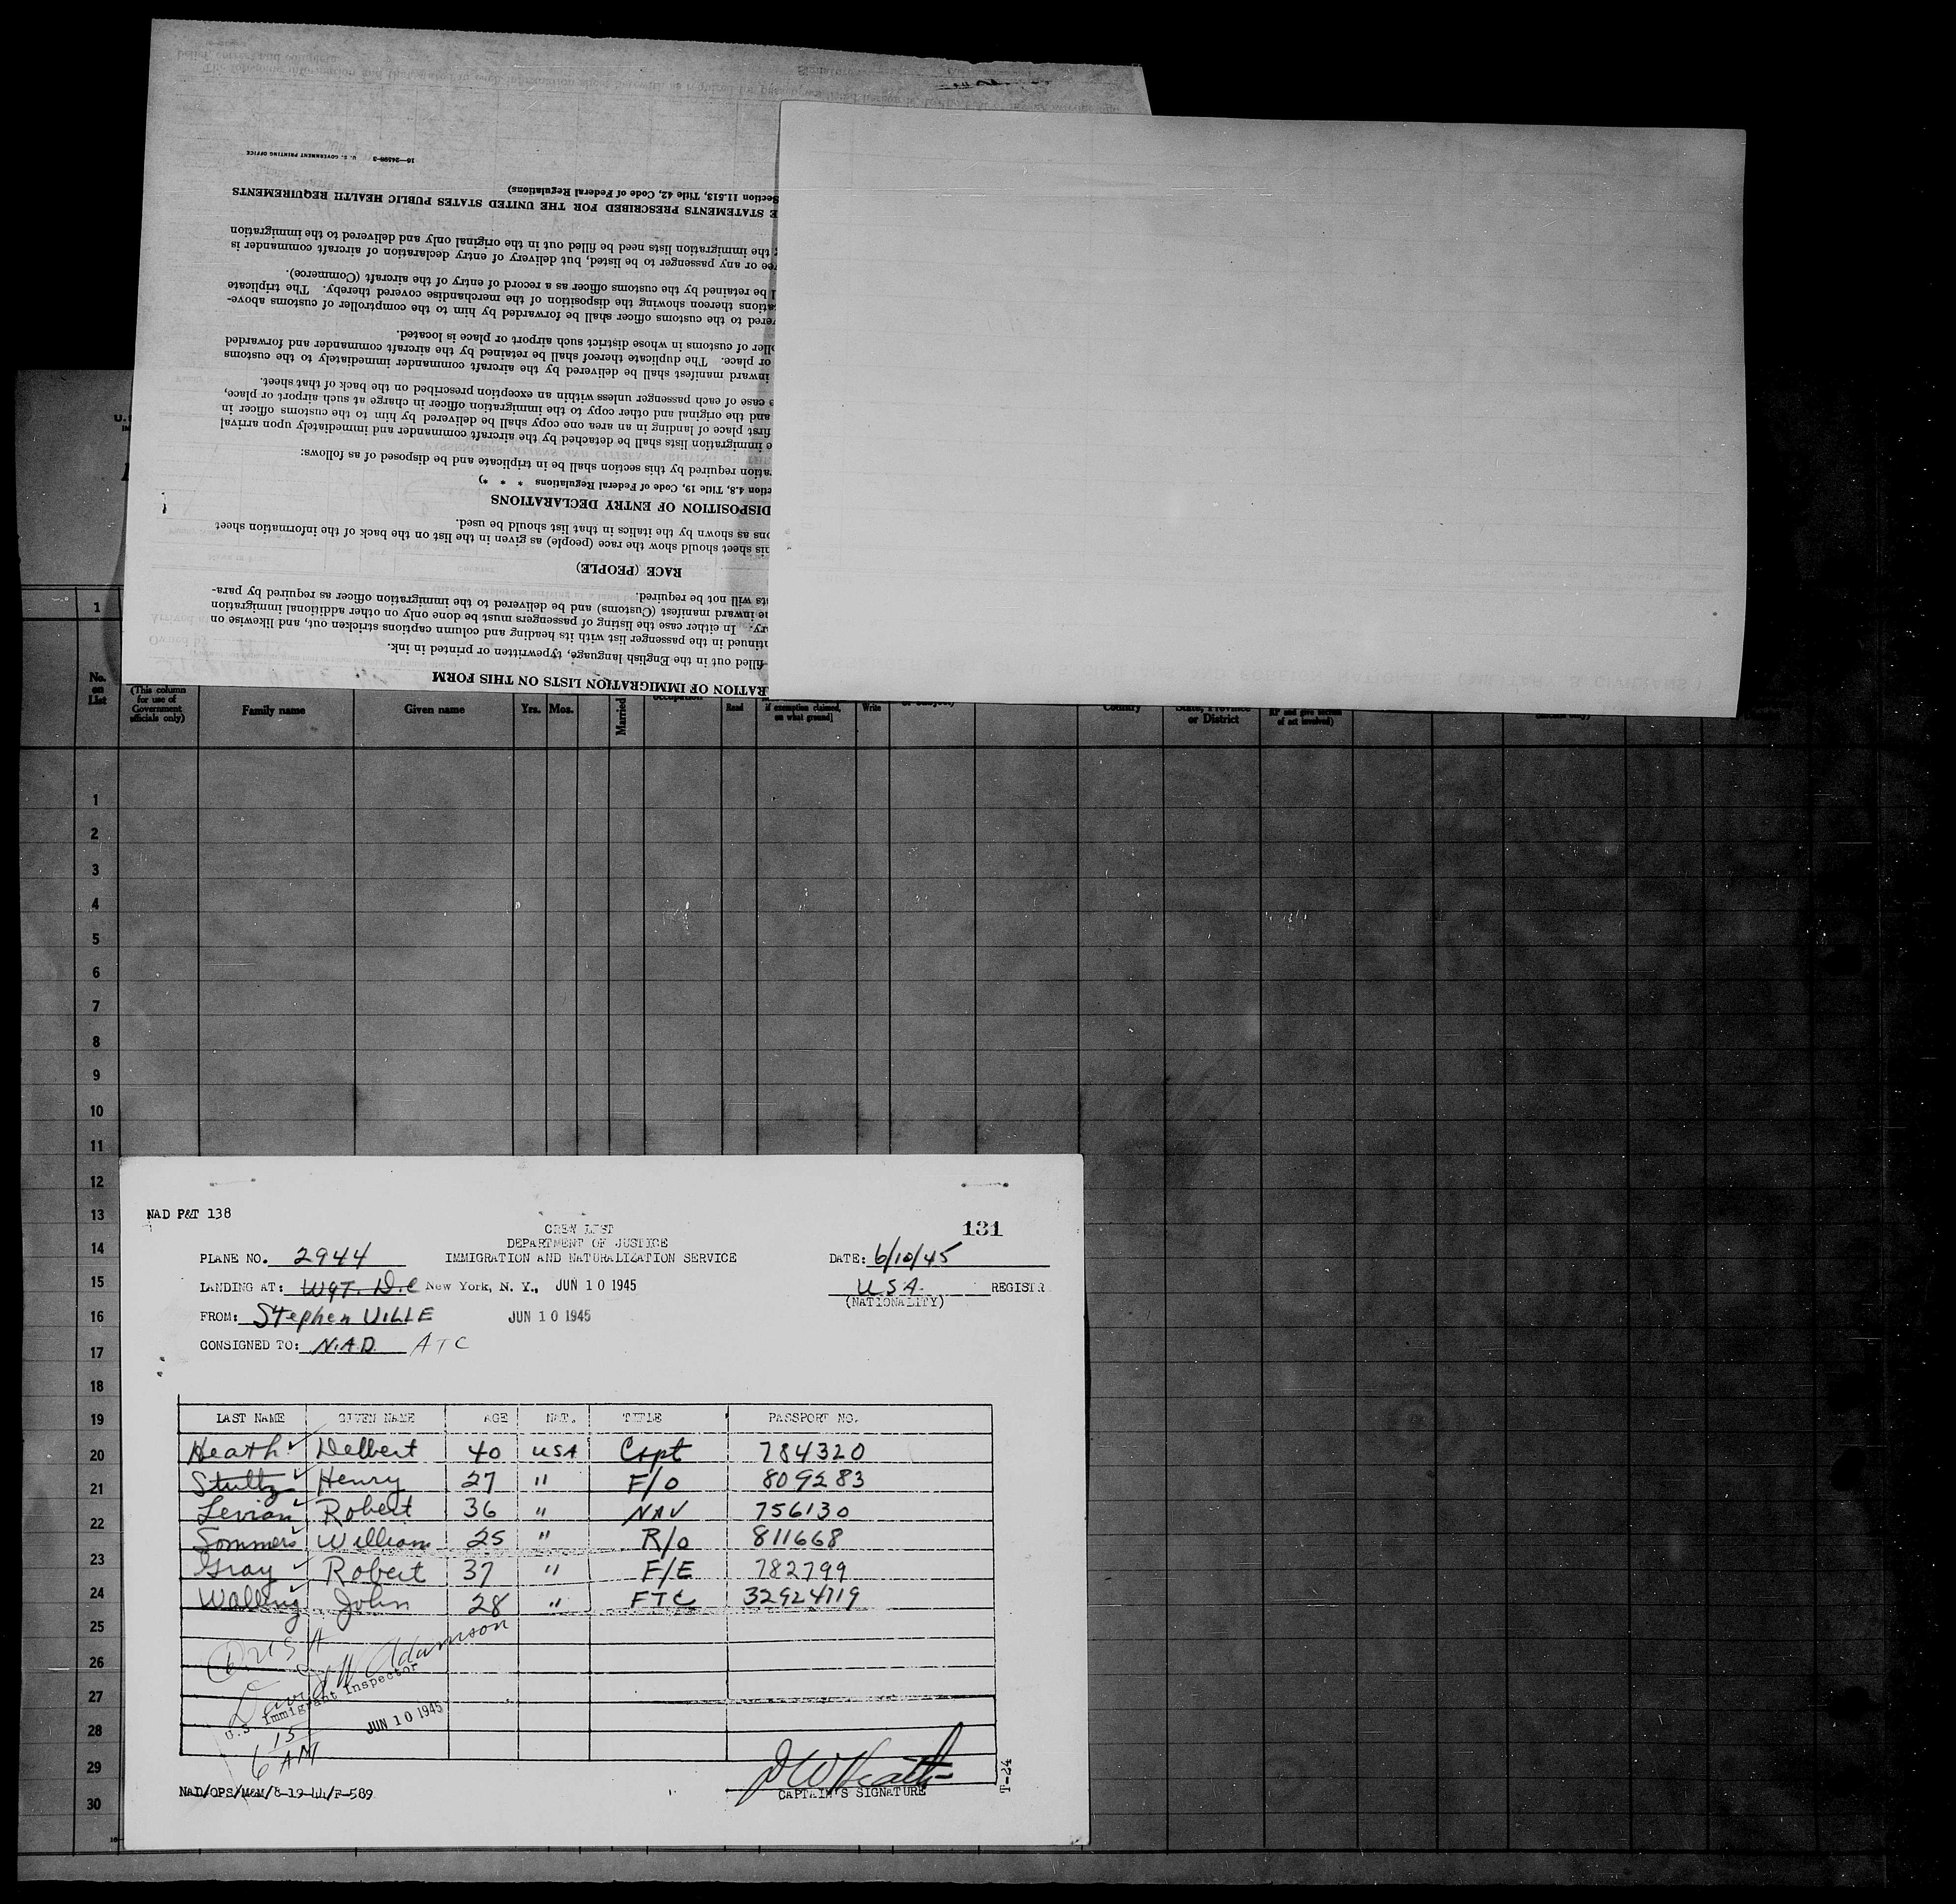 16—24598-3 U. S. GOVERNMENT PRINTING OFFICE
RATION OF IMMIGRATION LISTS ON THIS FORM
filled out in the English language, typewritten or printed in ink.
tinued in the passenger list with its heading and column captions stricken out, and likewise on
ry. In either case the listing of passengers must be done only on other additional immigration
e inward manifest (Customs) and be delivered to the immigration officer as required by para-
ts will not be required.
RACE (PEOPLE)
his sheet should show the race (people) as given in the list on the back of the information sheet
ons as shown by the italics in that list should be used.
DISPOSITION OF ENTRY DECLARATIONS
ction 4.8, Title 19, Code of Federal Regulations * * *)
ation required by this section shall be in triplicate and be disposed of as follows:
e immigration lists shall be detached by the aircraft commander and immediately upon arrival
first place of landing in an area one copy shall be delivered by him to the customs officer in
and the original and other copy to the immigration officer in charge at such airport or place,
e case of each passenger unless within an exception prescribed on the back of that sheet.
inward manifest shall be delivered by the aircraft commander immediately to the customs
or place. The duplicate thereof shall be retained by the aircraft commander and forwarded
oller of customs in whose district such airport or place is located.
vered to the customs officer shall be forwarded by him to the comptroller of customs above-
ations thereon showing the disposition of the merchandise covered thereby. The triplicate
l be retained by the customs officer as a record of entry of the aircraft (Commerce).
ree or any passenger to be listed, but delivery of entry declaration of aircraft commander is
the immigration lists need be filled out in the original only and delivered to the immigration
E STATEMENTS PRESCRIBED FOR THE UNITED STATES PUBLIC HEALTH REQUIREMENTS
Section 11.513, Title 42, Code of Federal Regulations)
1
No. on List
(This column for use of Government officials only)
Family name
Given name
Yrs. Mos.
Married
Read
if exemption claimed, on what ground]
Write
Country
State, Province or District
1
2
3
4
5
6
7
8
9
10
11
12
13
14
15
16
17
18
19
20
21
22
23
24
25
26
27
28
29
30
NAD P&T 138
131
CREW LIST
DEPARTMENT OF JUSTICE
IMMIGRATION AND NATURALIZATION SERVICE
PLANE NO. 2944
DATE: 6/10/45
LANDING AT: Wgt. D.C New York, N. Y., JUN 10 1945
USA. REGISTR
(NATIONALITY)
FROM: StephenVILLE JUN 10 1945
CONSIGNED TO: N.A.D. ATC
LAST NAME GIVEN NAME AGE NAT. TITLE PASSPORT NO.
Heath Delbert 40 USA Capt 784320
Stultz Henry 27 " F/O 809283
Levian Robert 36 " NAV 756130
Sommers William 25 " R/O 811668
Gray Robert 37 " F/E 782799
Walling John 28 " FTC 32924719
6 USA
David H Adamson
U.S Immigrant Inspector
JUN 10 1945
6 15 AM
D W Heath
CAPTAIN'S SIGNATURE
NAD/OPS/M&M/8-19-44/F-589
T-24